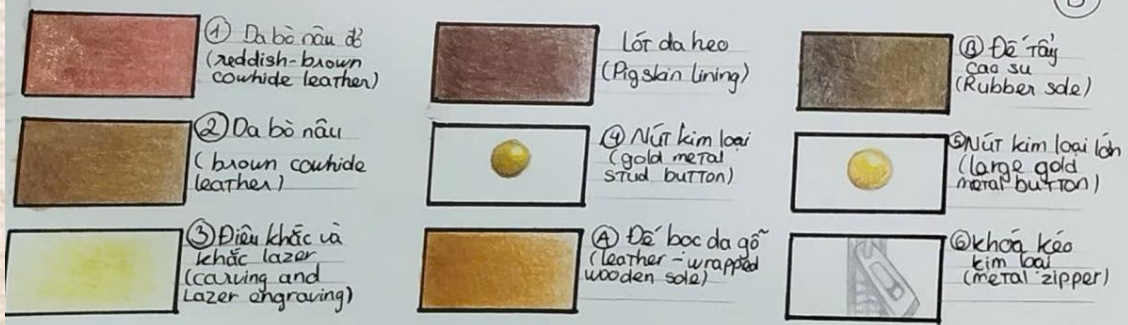 ① Da bò nâu đỏ
(reddish-brown
cowhide leather)
② Da bò nâu
(brown cowhide
leather)
③ Điêu khắc và
khắc lazer
(carving and
Lazer engraving)
Lót da heo
(Pigskin lining)
④ Nút kim loại
(gold metal
stud button)
Ⓐ Đế bọc da gỗ
(leather-wrapped
wooden sole)
Ⓑ Đế Tẩy
cao su
(Rubber sole)
⑤ Nút kim loại lớn
(large gold
metal button)
⑥ khoá kéo
kim loại
(metal zipper)